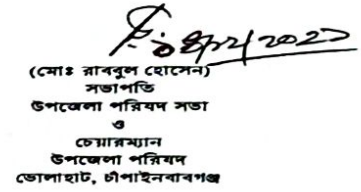 (মোঃ রাববুল হোসেন)
সভাপতি
উপজেলা পরিষদ সভা
ও
চেয়ারম্যান
উপজেলা পরিষদ
ভোলাহাট, চাঁপাইনবাবগঞ্জ